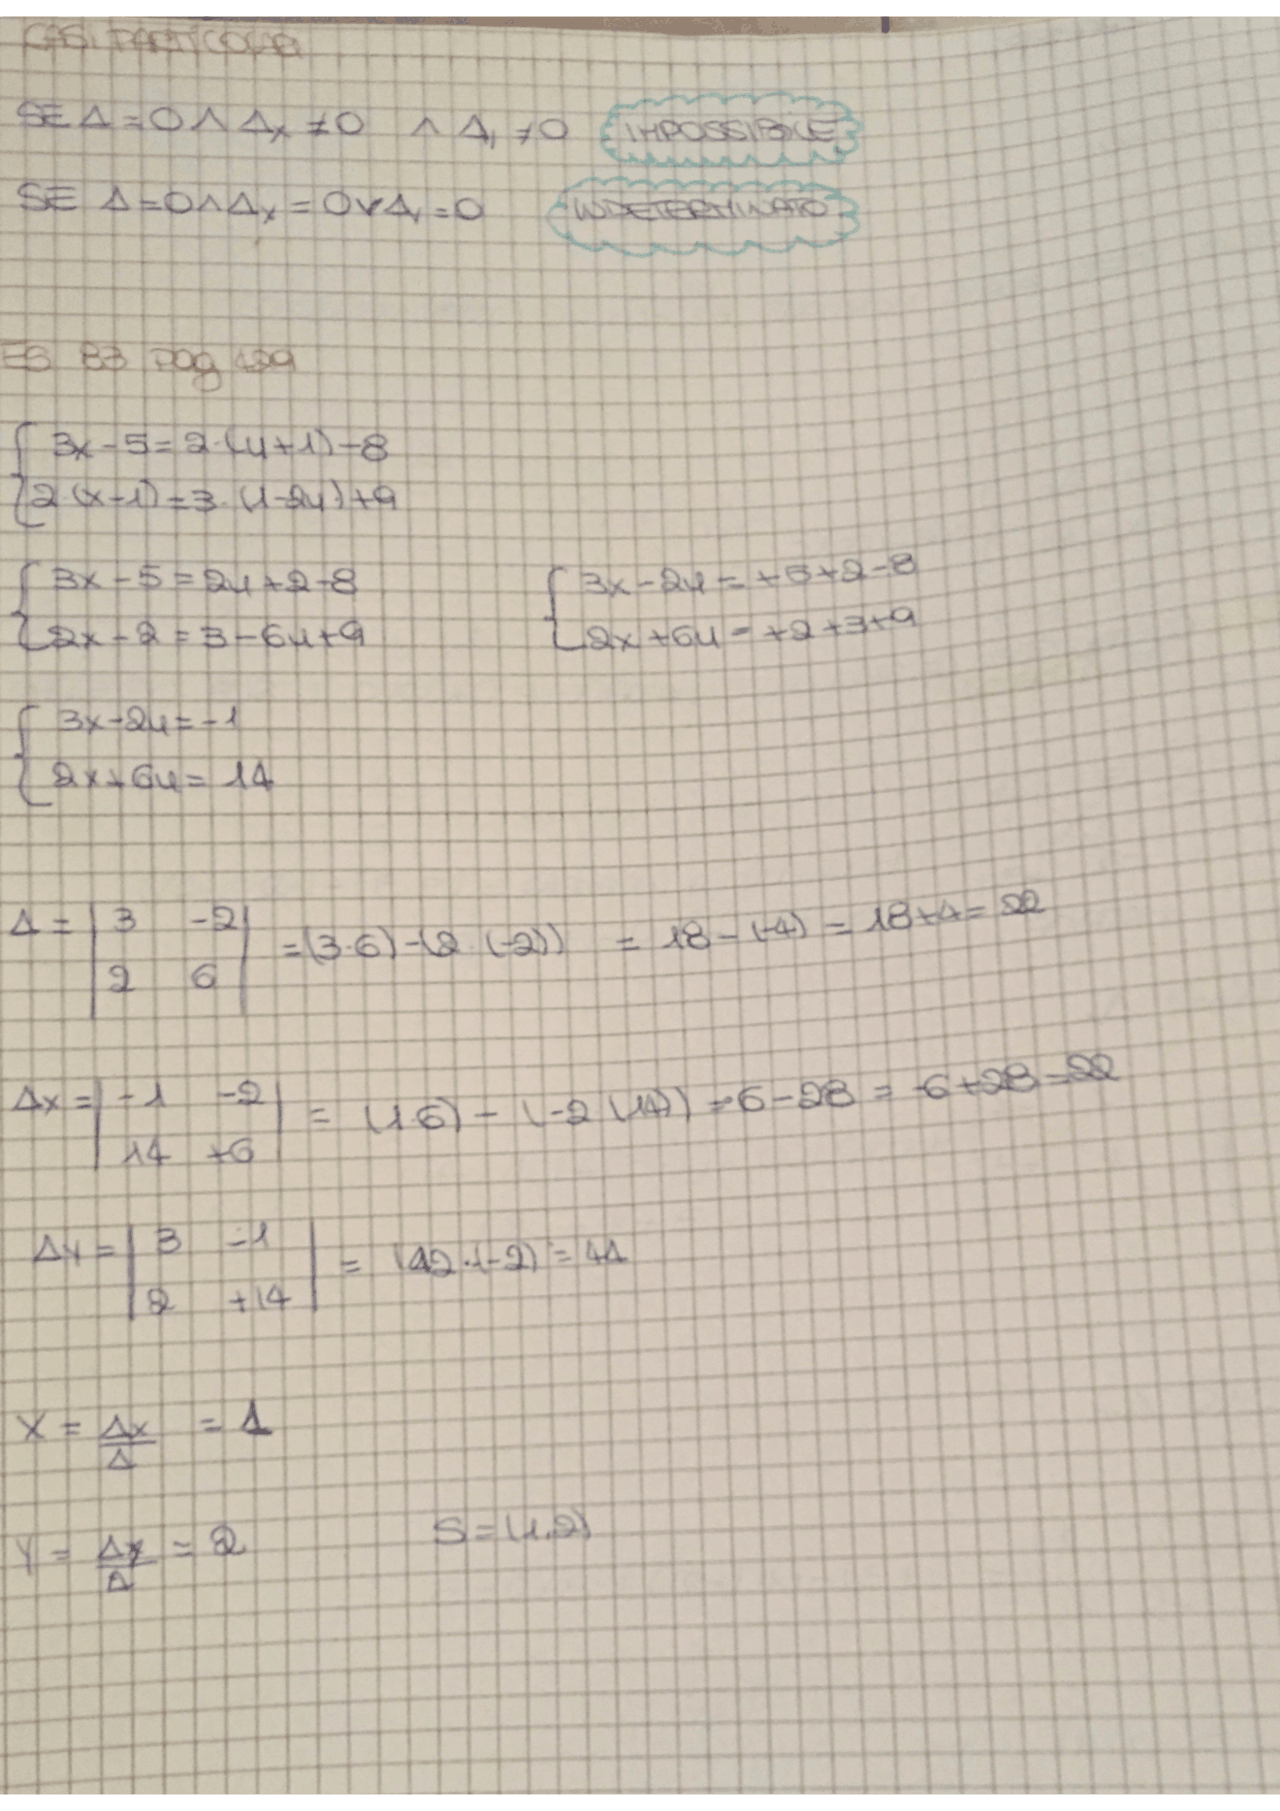 CASI PARTICOLARI
SE Δ = 0 ∧ Δx ≠ 0 ∧ Δy ≠ 0 IMPOSSIBILE
SE Δ = 0 ∧ Δx = 0 ∨ Δy = 0 INDETERMINATO
ES 83 pag 429
{ 3x - 5 = 2·(y+1) - 8
{ 2·(x-1) = 3·(1-2y) + 9
{ 3x - 5 = 2y + 2 - 8 { 3x - 2y = +5 + 2 - 8
{ 2x - 2 = 3 - 6y + 9 { 2x + 6y = +2 + 3 + 9
{ 3x - 2y = -1
{ 2x + 6y = 14
Δ = | 3 -2 | = (3·6) - (2·(-2)) = 18 - (-4) = 18 + 4 = 22
| 2 6 |
Δx = | -1 -2 | = (1·6) - (-2(14)) = -6 - 28 = -6 + 28 = 22
| 14 +6 |
Δy = | 3 -1 | = (42·(-2) = 44
| 2 +14 |
X = Δx/Δ = 1
Y = Δy/Δ = 2 S = (1,2)